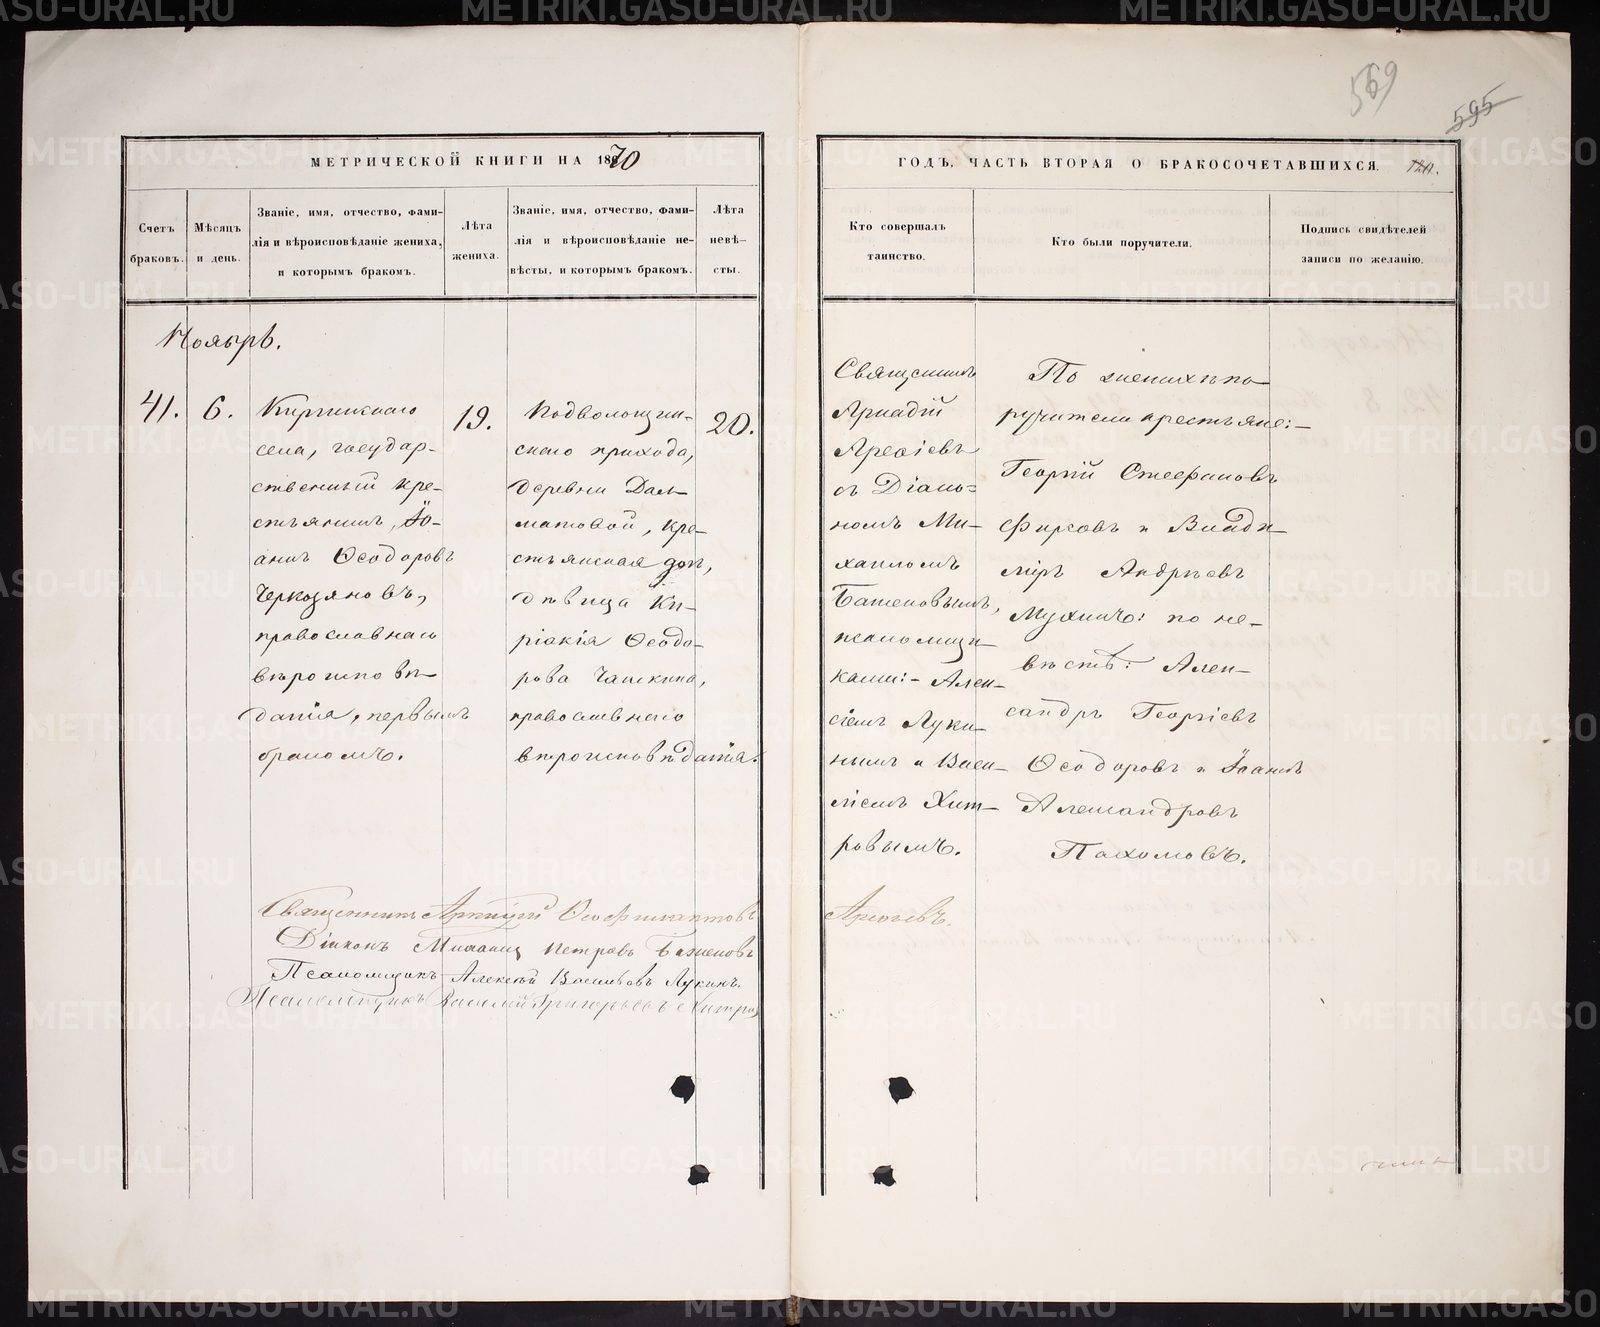 569
595
МЕТРИЧЕСКОЙ КНИГИ НА 1870
ГОДЪ, ЧАСТЬ ВТОРАЯ О БРАКОСОЧЕТАВШИХСЯ.
Счетъ
браковъ.
Мѣсяцъ
и день.
Званіе, имя, отчество, фами-
лія и вѣроисповѣданіе жениха,
и которымъ бракомъ.
Лѣта
жениха.
Званіе, имя, отчество, фами-
лія и вѣроисповѣданіе не-
вѣсты, и которымъ бракомъ.
Лѣта
невѣ-
сты.
Кто совершалъ
таинство.
Кто были поручители.
Подпись свидѣтелей
записи по желанію.
Ноябрь.
41.
6.
Киргинскаго
села, государ-
ственный кре-
стьянинъ, Іо-
аннъ Ѳеодоровъ
Черкозяновъ,
православнаго
вѣроисповѣ-
данія, первымъ
бракомъ.
19.
Подволошин-
скаго прихода,
деревни Дал-
матовой, кре-
стьянская дочь,
дѣвица Ки-
ріакія Ѳеодо-
рова Чашкина,
православнаго
вѣроисповѣданія.
20.
Священникъ
Аркадій
Арефіевъ
съ Діако-
номъ Ми-
хаиломъ
Баженовымъ,
псаломщи-
ками:- Алек-
сіемъ Луки-
нымъ и Васи-
ліемъ Хит-
ровымъ.
По женихѣ по-
ручители крестьяне:-
Георгій Стефановъ
Фирсовъ и Влади-
міръ Андреевъ
Мухинъ: по не-
вѣстѣ: Алек-
сандръ Георгіевъ
Ѳеодоровъ и Іоаннъ
Александровъ
Пахомовъ.
Священникъ Аркадій Ѳеофилактовъ Арефьевъ.
Діаконъ Михаилъ Петровъ Баженовъ
Псаломщикъ Алексѣй Васильевъ Лукинъ.
Псаломщикъ Василій Григорьевъ Хитровъ
METRIKI.GASO-URAL.RU